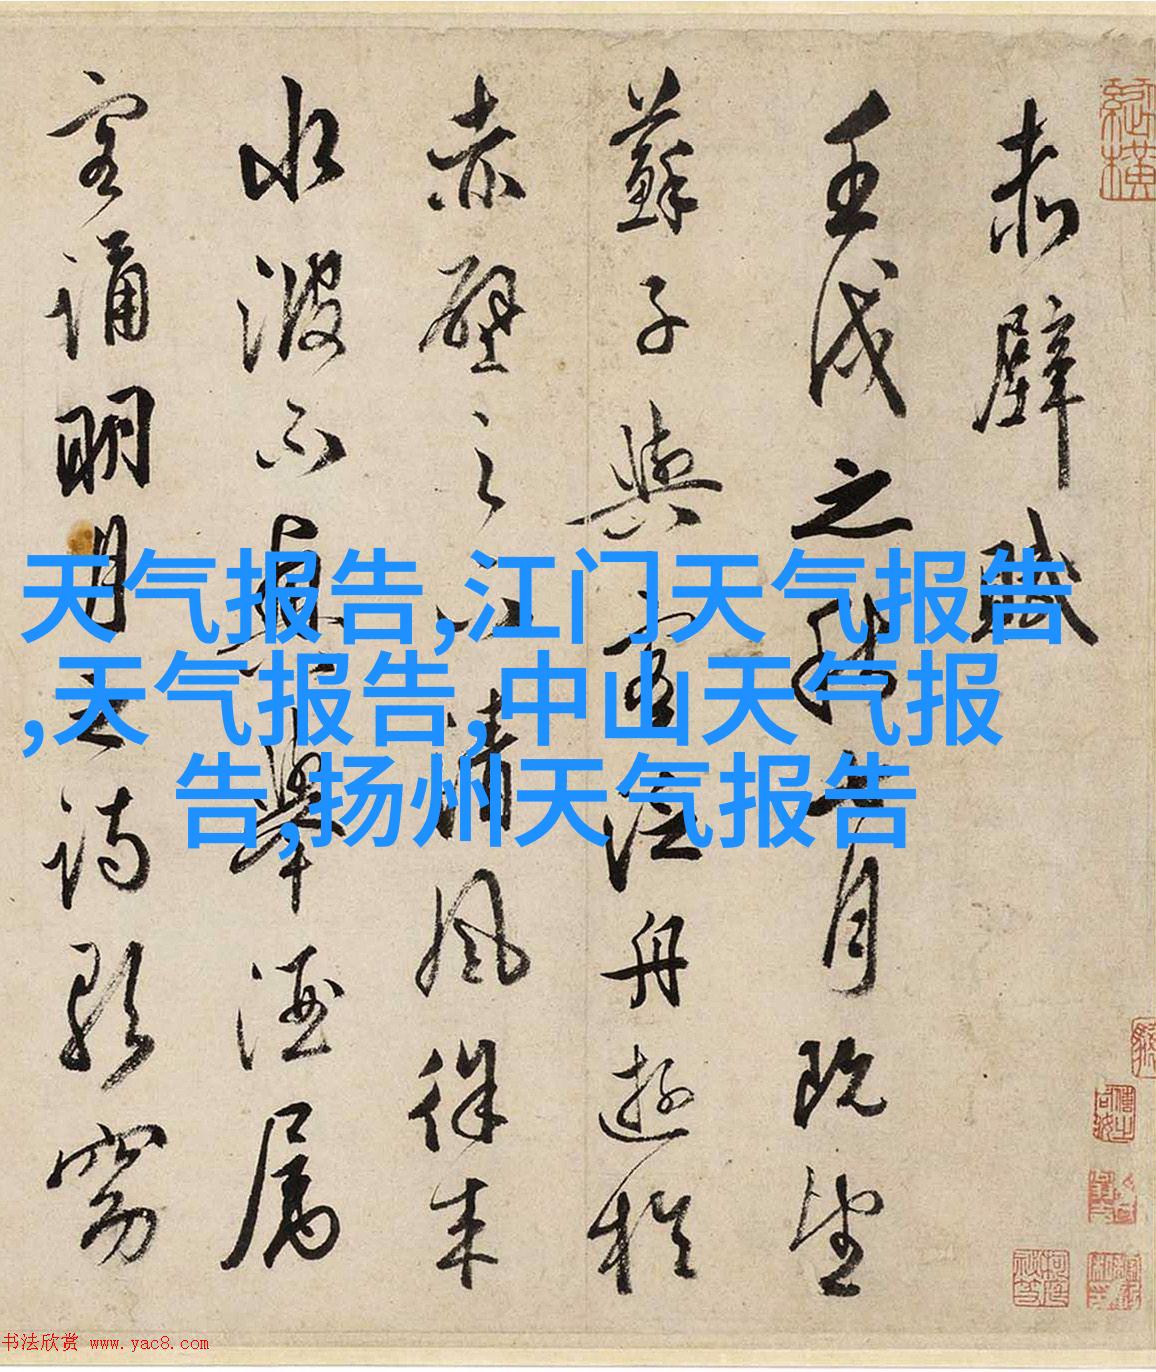 赤壁賦
壬戌之秋七月既望
蘇子與客泛舟遊於
赤壁之下清風徐来
水波不興舉酒属
客誦明月之詩歌窈
天气报告,江门天气报告
,天气报告,中山天气报
告,扬州天气报告
书法欣赏 www.yac8.com